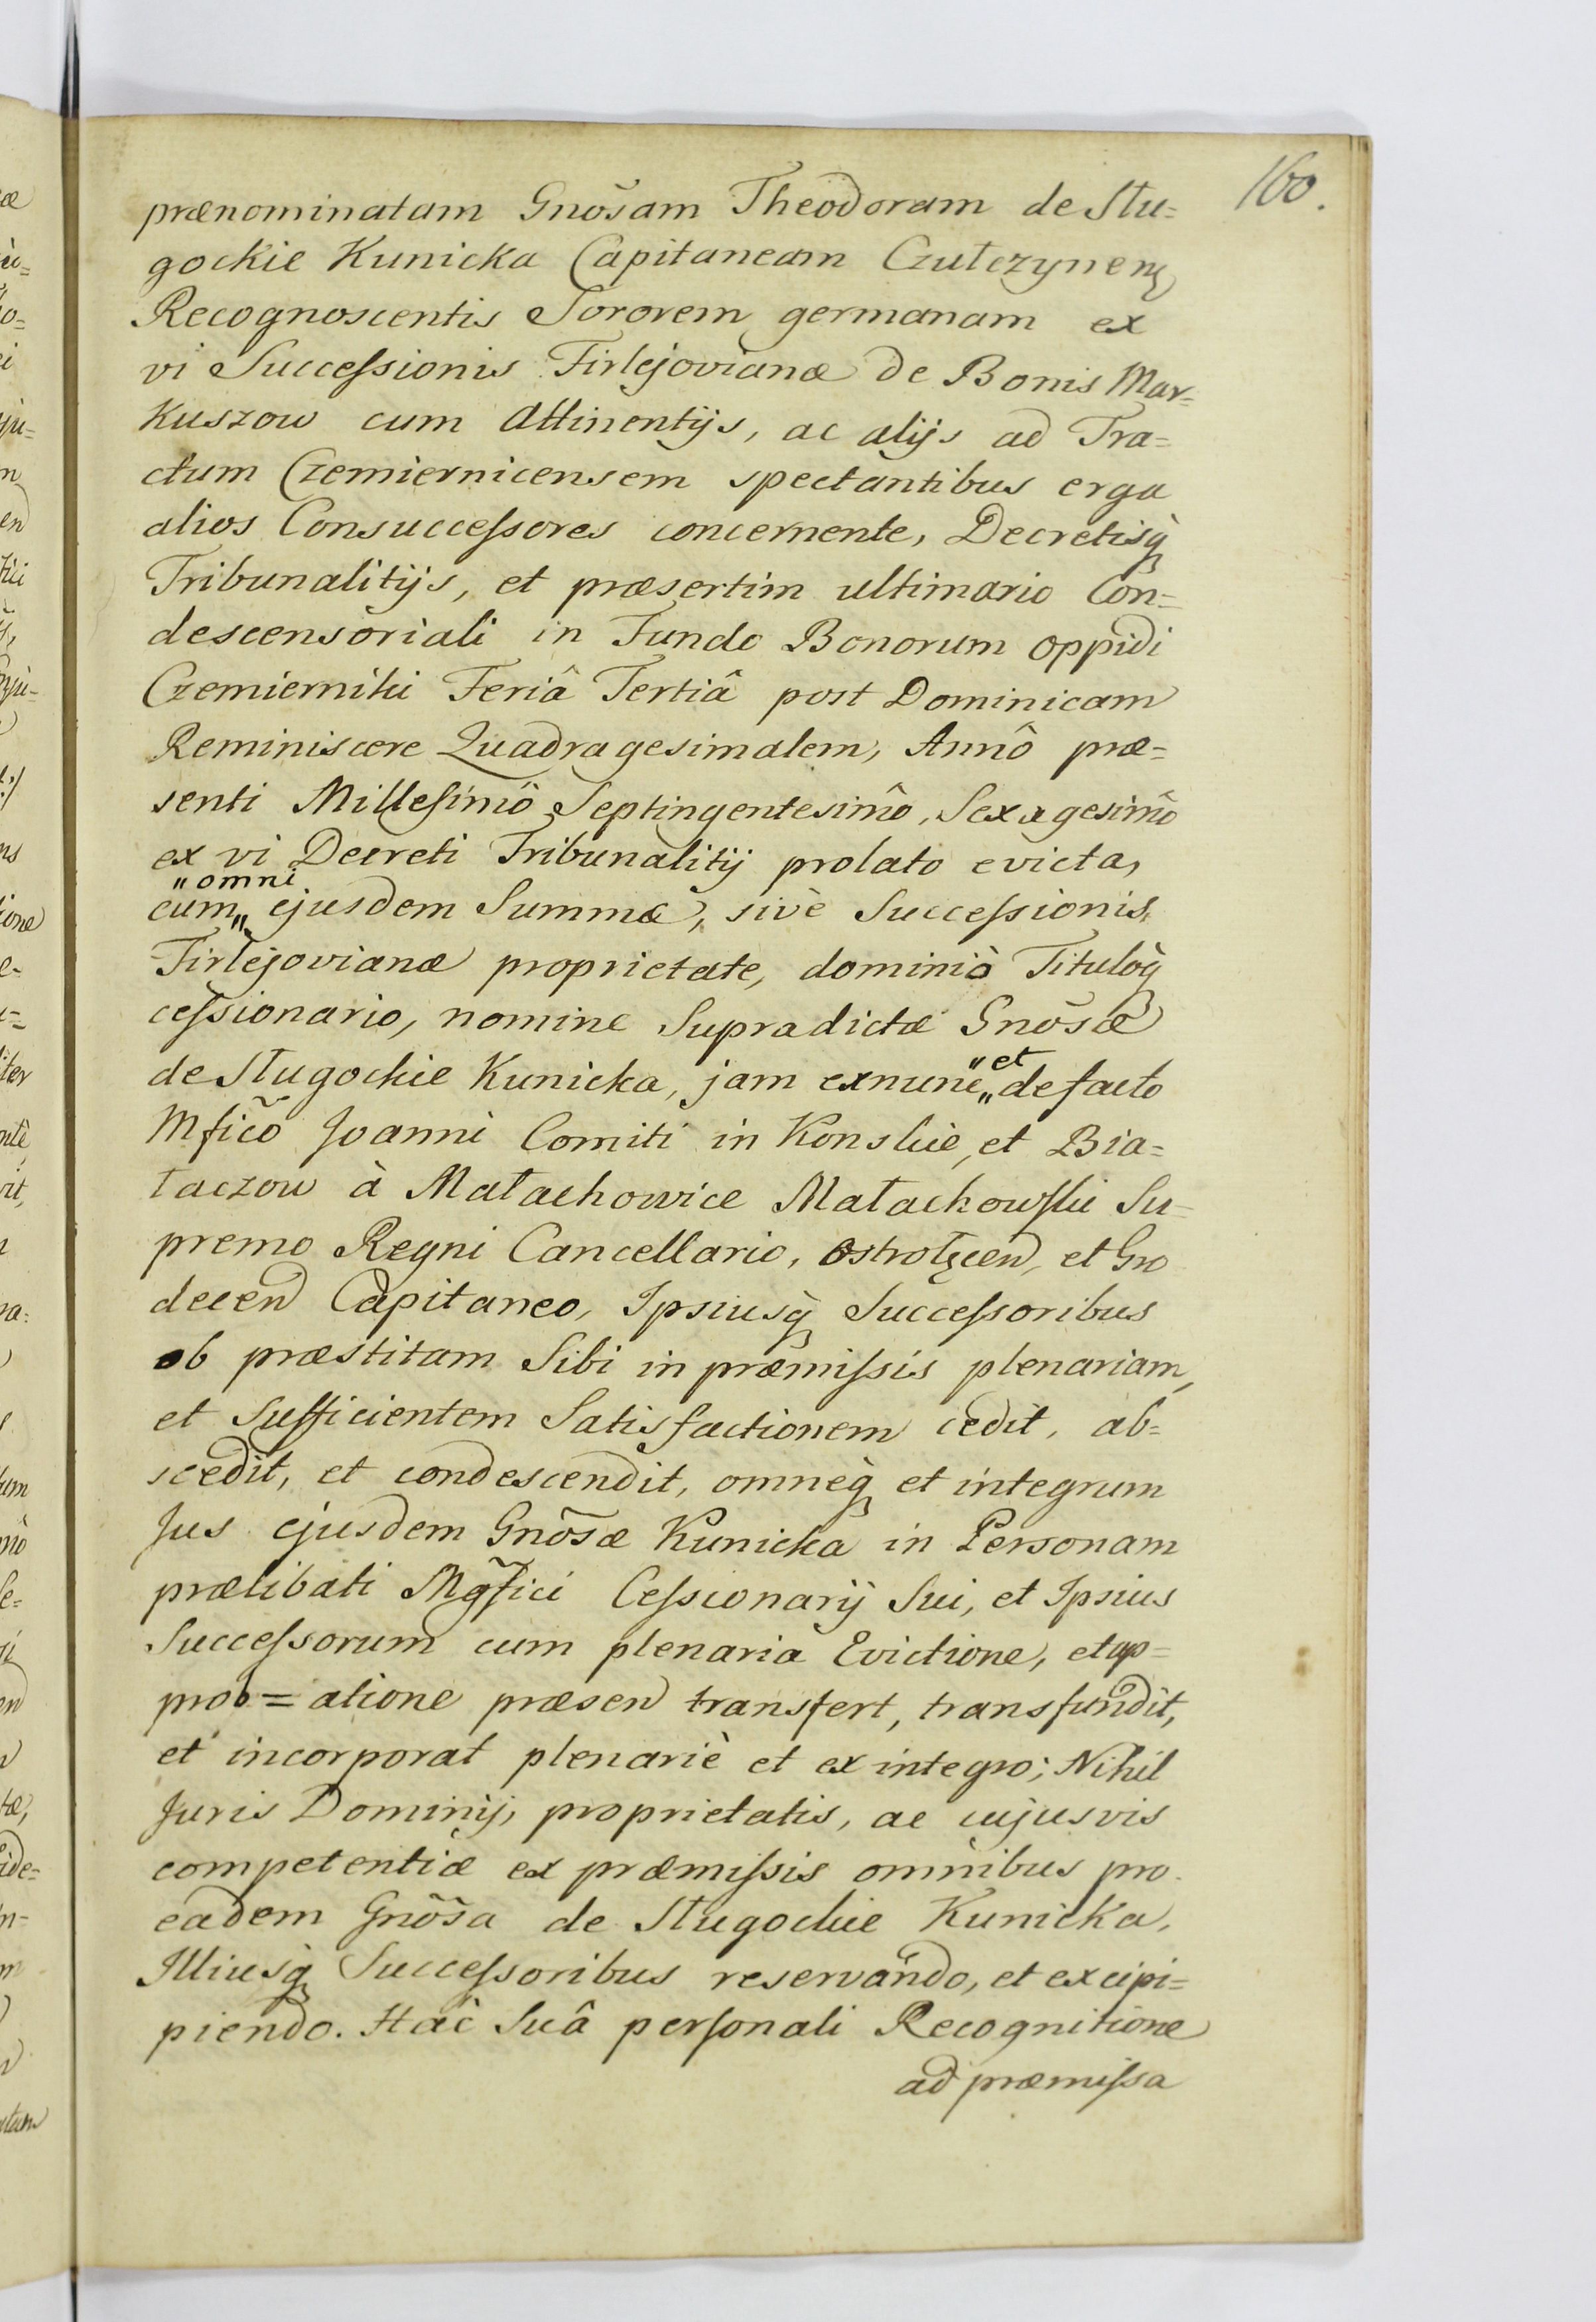 160.
prænominatam Gnõsam Theodoram de Słu=
gockie Kunicka Capitaneam Czułczynen
Recognoscentis Sororem germanam ex
vi Succeſsionis Firlejovianæ de Bonis Mar=
kuszow cum Attinentijs, ac alijs ad Tra=
ctum Czemiernicensem spectantibus erga
alios Consucceſsores concernente, Decretisq̀
Tribunalitijs, et præsertim ultimario Con=
descensoriali in Fundo Bonorum Oppidi
Czemierniki Feriâ Tertiâ post Dominicam
Reminiscere Quadragesimalem, Annô præ=
senti Milleſimô Septingentesimô, Sexagesimô
ex vi Decreti Tribunalitij prolato evicta,
"omni
cum„ ejusdem Summæ, sivè Succeſsionis,
Firlejovianæ proprietate, dominiô Titulôq̀
ceſsionario, nomine Supradictæ Gnõsæ
"et
de Sługockie Kunicka, jam exnunc„ de facto
Mfic̃o Joanni Comiti in Konskie, et Bia=
łaczow à Małachowice Małachowſki Su=
premo Regni Cancellario, Ostrołęcen, et Gro
decen Capitaneo, Ipsiusq̀ Succeſsoribus
ob præstitam Sibi in præmiſsis plenariam,
et Sufficientem Satisfactionem cedit, ab=
scedit, et condescendit, omneq̀ et integrum
Jus ejusdem Gnõsæ Kunicka in Personam
prælibati Mg̃fici Ceſsionarij Sui, et Ipsius
Succeſsorum cum plenaria Evictione, et ap=
prob=atione præsen transfert, transfundit,
et incorporat plenariè et ex integro; Nihil
Juris Dominij, proprietatis, ac cujusvis
competentiæ ex præmiſsis omnibus pro
eadem Gnõsa de Sługockie Kunicka,
Illiusq̀ Succeſsoribus reservando, et excipi=
piendo. Hac Suâ perſonali Recognitione
ad præmiſsa